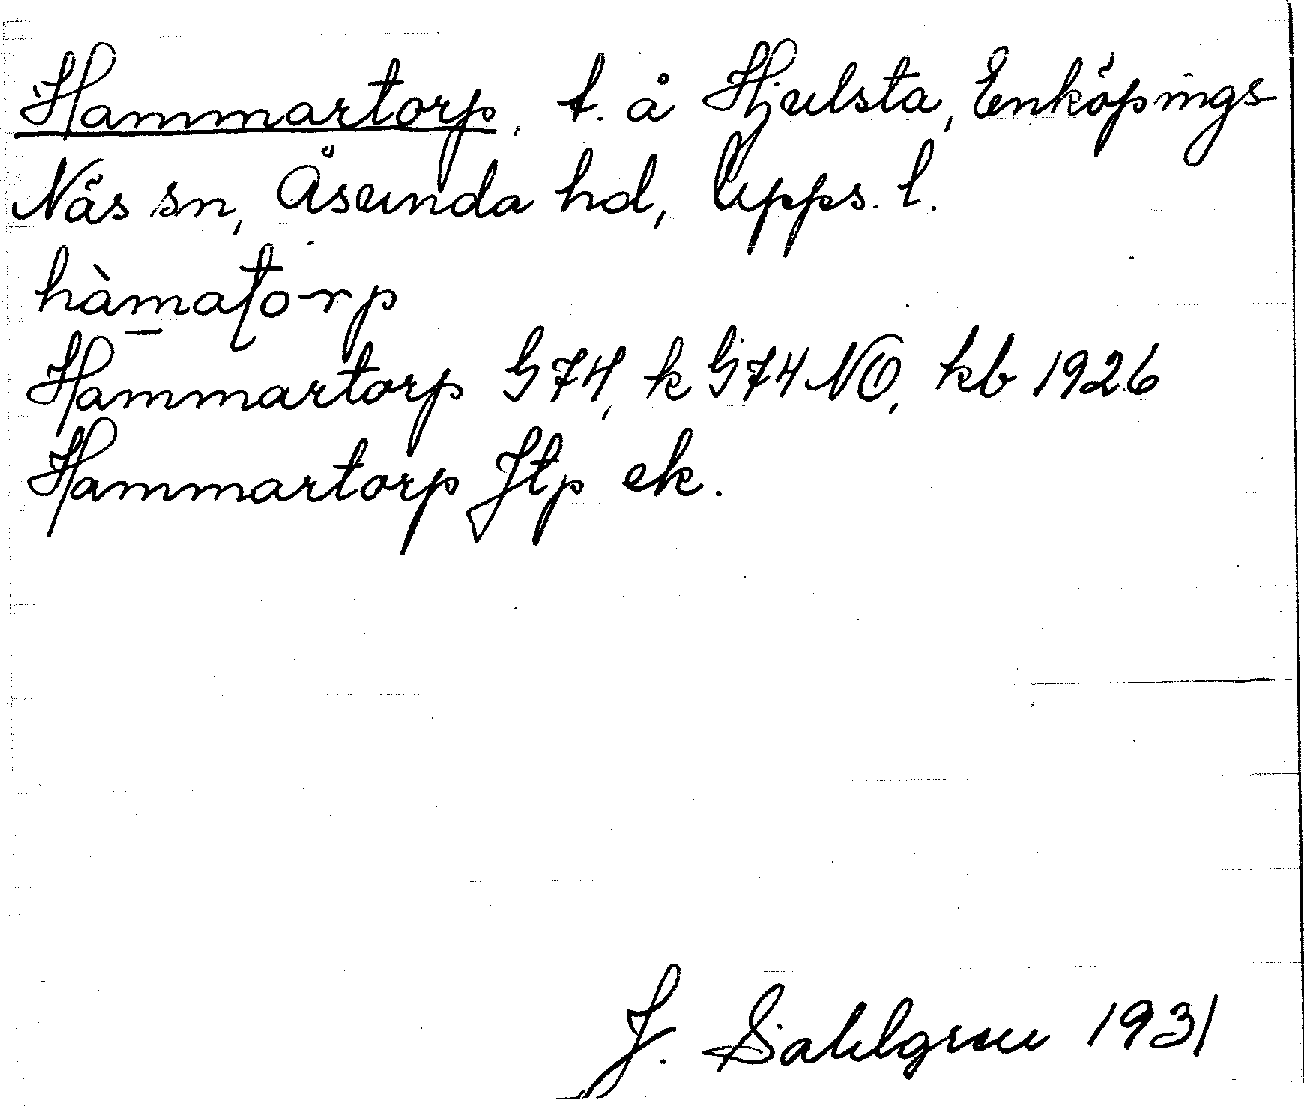 Hammartorp, t. å Hjulsta, Enköpings-
Näs sn, Åsunda hd, Upps. l.
hàmaṯorp
Hammartorp G74, k G74 NO, kb 1926
Hammartorp Jtp ek.
J. Sahlgren 1931